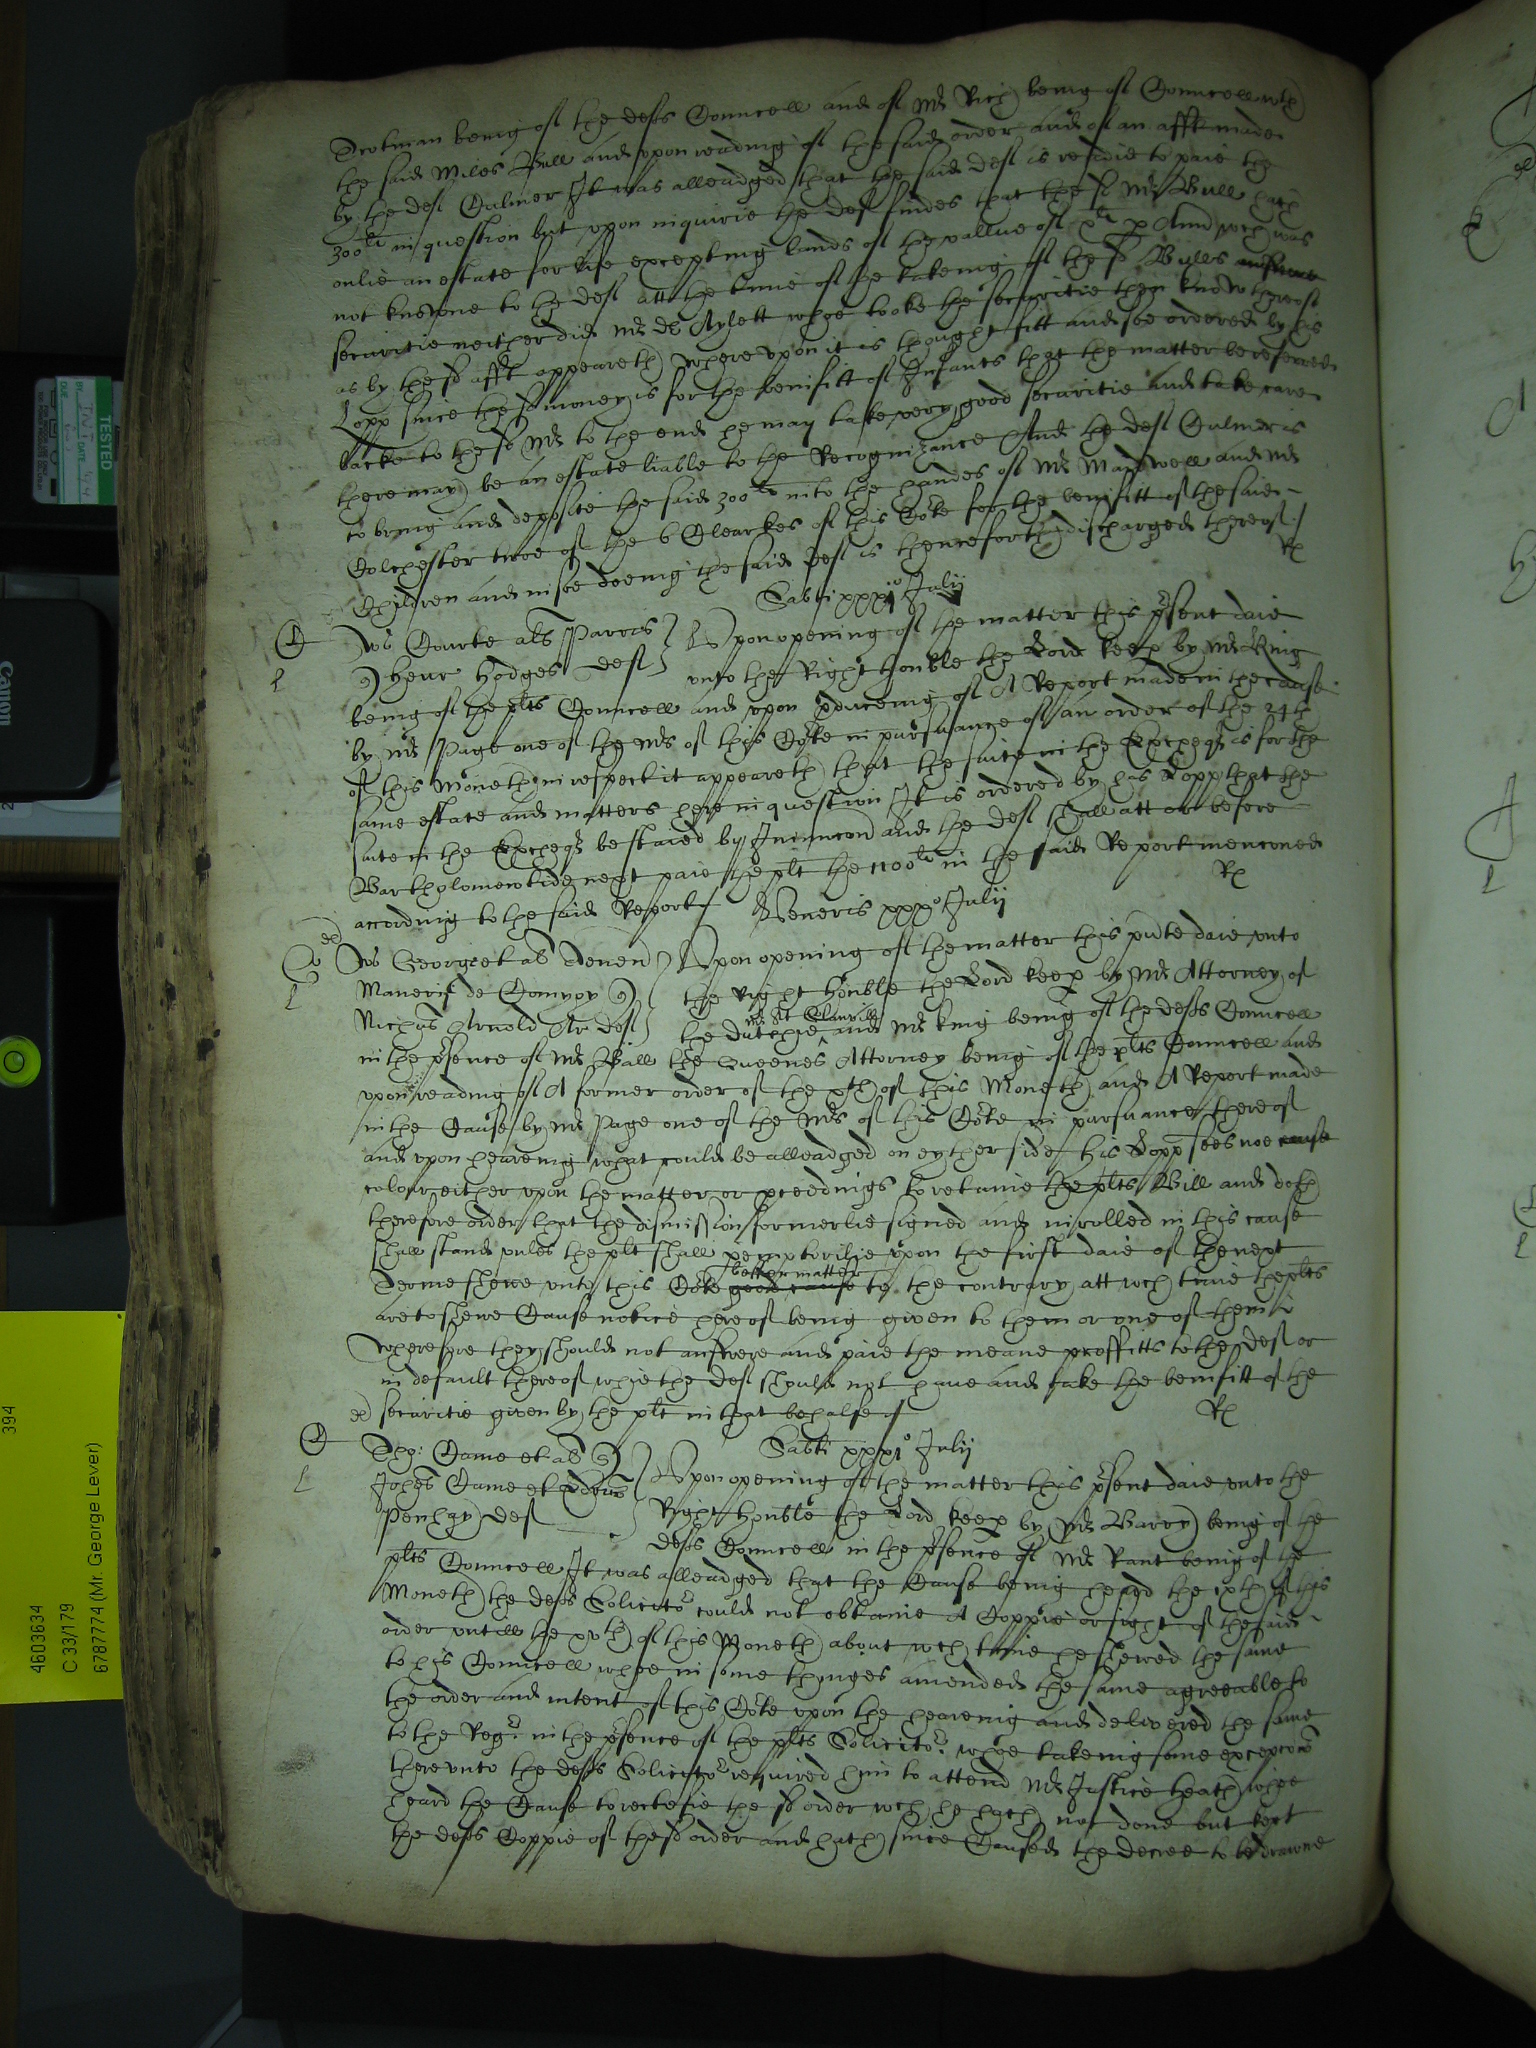 Scotman being of the defts Councell and of Mr Rich being of Councell wth
the said Miles Bull and upon reading of the said order and of an afft made
by the deft Culmer It was alleadged that the said deft is readie to paie the
300li in question but upon inquirie the deft findes that the sd Mr Bull hath
onlie an estate for life excepting lands of the vallue of xli p Ann wch was
not knowne to the deft att the time of the takeing of the sd Bulls
securitie neither did Mr Aylett whoe tooke the securitie then know thereof
as by the sd afft appeareth whereupon it is thought fitt and soe ordered by his
Lopp since the sd money is for the benifitt of Infants that the matter be referred
backe to the sd Mr to the end he may take very good securitie and take care
there may be an estate liable to the Recognizance And the deft Culmer is
to bring and deposite the said 300li into the handes of Mr Maydwell and Mr
Colchester twoe of the 6 Clearkes of this Cote for the benifitt of the said
Children and in soe doeing the said deft is henceforth discharged thereof /
Rx
Sabti xxxi° Julij
Jo: Courte als Parris
Henr Hodges deft
Upon opening of the matter this psent daie
unto the Right honble the Lord keep by Mr King
being of the plts Councell and upon pduceing of A Report made in the cause
by Mr Page one of the Mrs of this Cote in pursuance of an order of the 24th
of this Moneth in respect it appeareth that the suite in the Excheqr is for the
same estate and matters here in question It is ordered by his Lopp that the
suite in the Excheqr be staied by Iniunccon and the deft shall att or before
Bartholomewtide next paie the plt the 1100li in the said Report menconed
according to the said Report /
Rx
Veneris xxx° Julij
Georg et al Tenen
Manerij de
Nichus Arnold Ar deft
Upon opening of the matter this pnte daie unto
the Right honble the Lord keep by Mr Attorney of
the Dutchie Mr St Glanvill and Mr King being of the defts Councell
in the psence of Mr Ball the Queenes Attorney being of the plts Councell and
upon reading of A former order of the xth of this Moneth and A Report made
in the Cause by Mr Page one of the Mrs of this Cote in pursuance thereof
and upon heareing what could be alleadged on eyther side his Lopp sees noe cause
colour either upon the matter or pceedings to retaine the plts Bill and doth
therefore order that the dismission formerlie signed and inrolled in this cause
shall stand unles the plt shall pemptorilie upon the first daie of the next
Terme shewe unto this Cote good cause better matter to the contrary att wch time the plts
are to shewe Cause notice hereof being given to them or one of them
wherefore they should not answere and paie the meane proffitts to the deft or
in default thereof whie the deft should not have and take the benifitt of the
securitie given by the plt in that behalfe /
Rx
Sabti xxxi° Julij
Tho: Came et al
Johes Came et
Penhay deft
Upon opening of the matter this psent daie unto the
Right honble the Lord keep by Mr Barry being of the
defts Councell in the psence of Mr Rant being of the
plts Councell It was alleadged that the Cause being heard the ixth of this
Moneth the defts Solicitor could not obtaine A Coppie or sight of the said
order untill the xvth of this Moneth about wch time he shewed the same
to his Councell whoe in some thinges amended the same agreeable to
the order and intent of this Cote upon the heareing and delivered the same
to the Regr in the psence of the plts Solicitor whoe takeing some excepcons
thereunto the defts Solicitor required him to attend Mr Justice Heath whoe
heard the Cause to rectefie the sd order wch he hath not done but kept
the defts Coppie of the sd order and hath since Caused the decree to be drawne
4603634 394
C 33/179
6787774 (Mr. George Lever)
TESTED
Canon